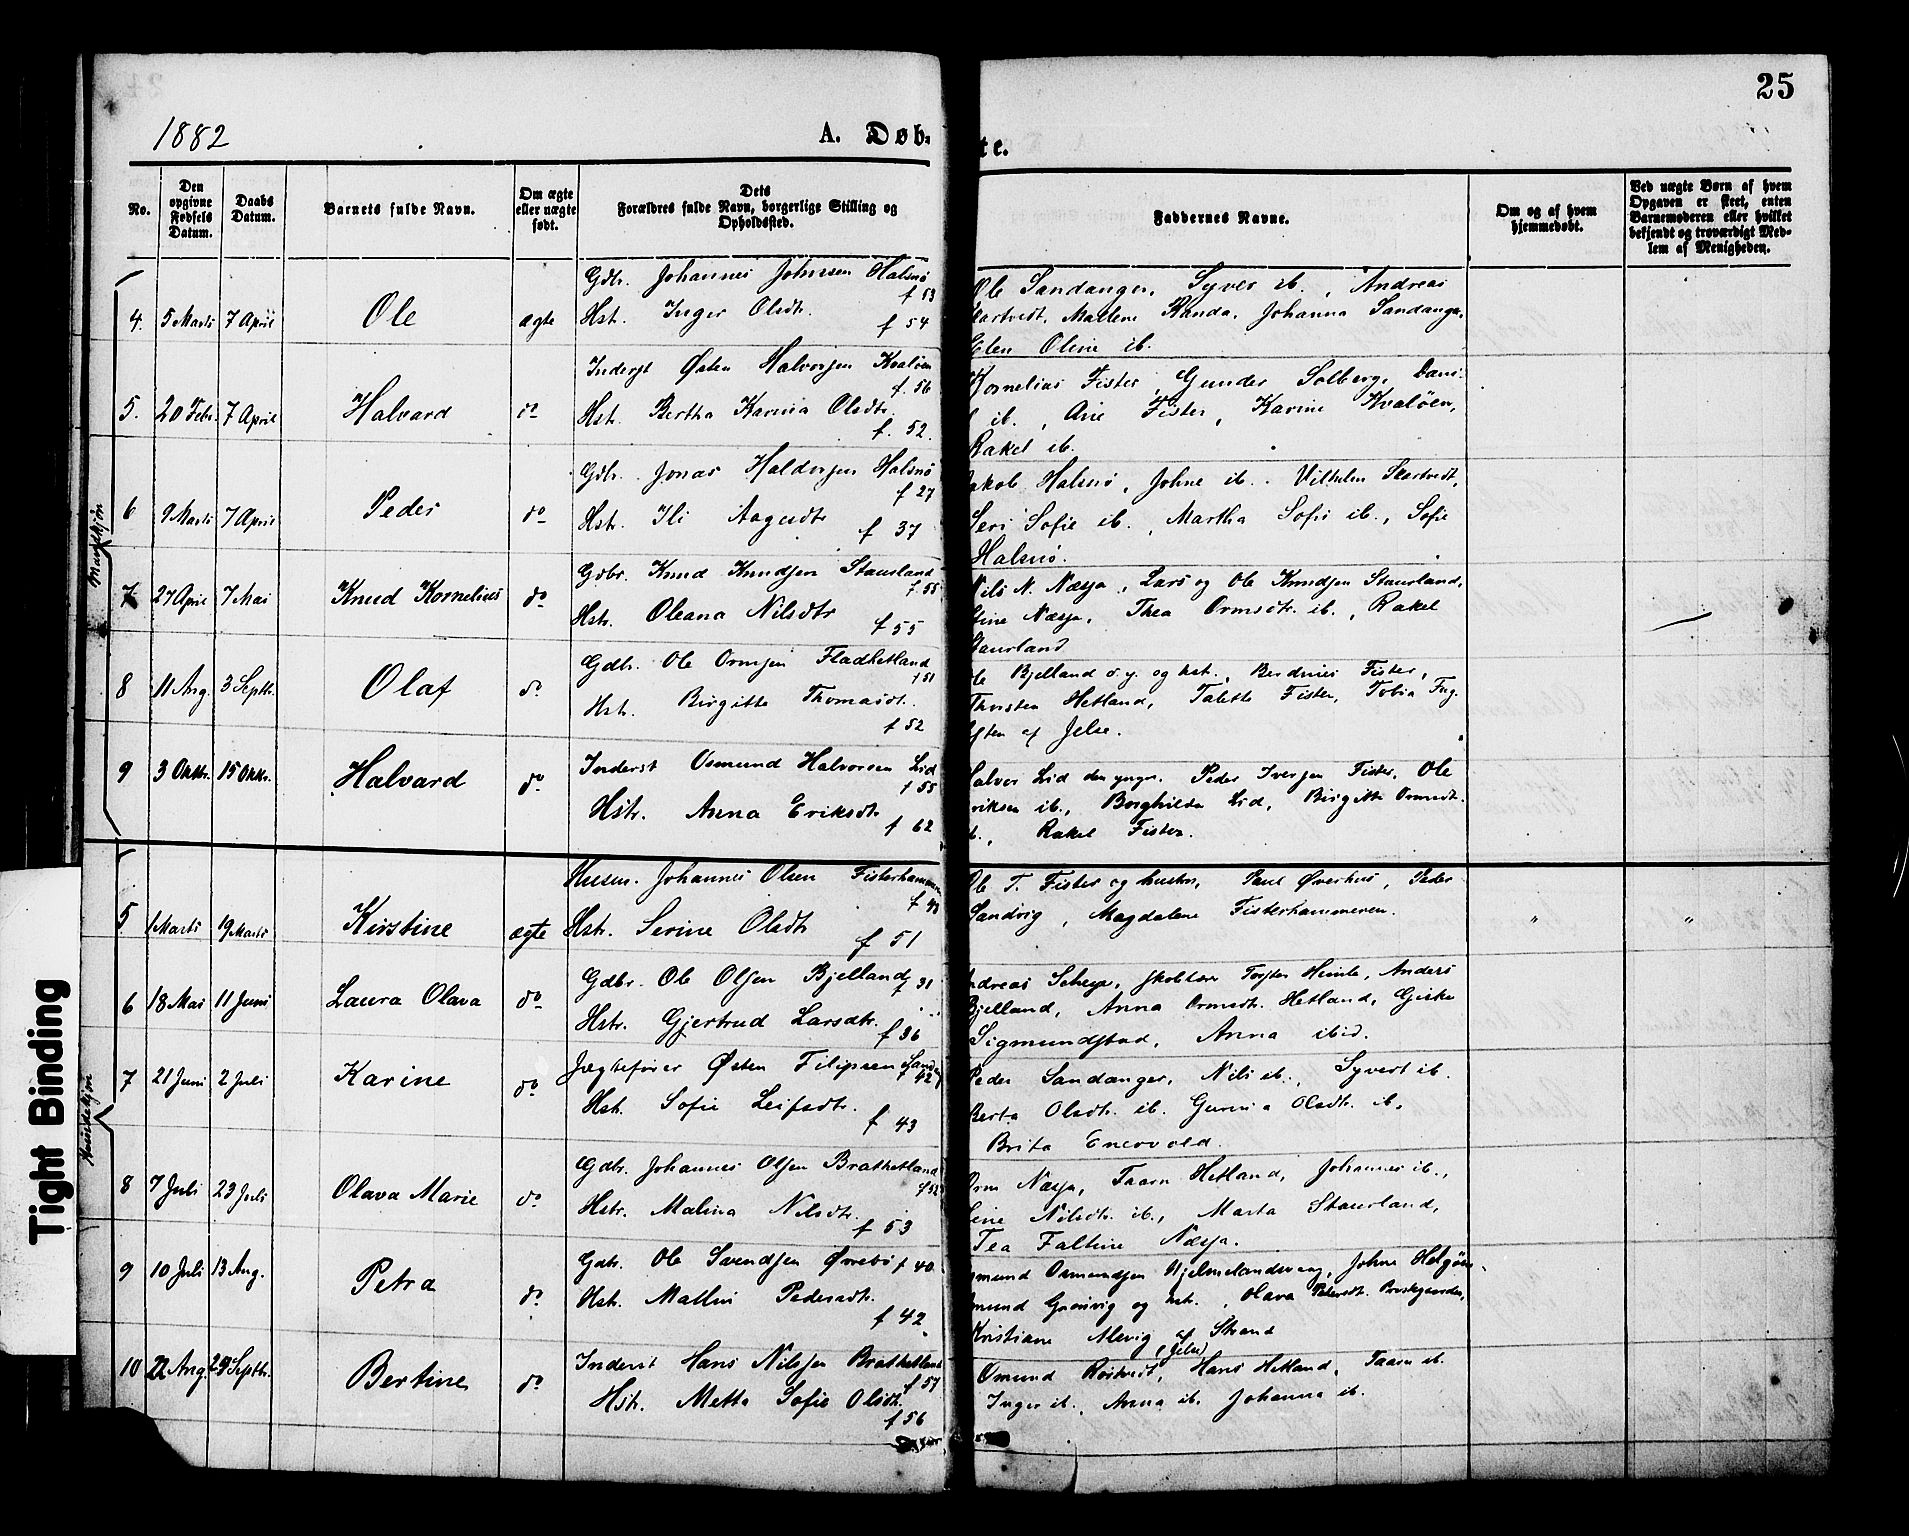 25
1882
A. Døb-
te.
No.
Den opgivne Fødsels Datum.
Daabs Datum.
Barnets fulde Navn.
Om ægte eller uægte født.
Dets Forældres fulde Navn, borgerlige Stilling og Opholdssted.
Faddernes Navne.
Om og af hvem hjemmedøbt.
Ved uægte Børn af hvem Opgaven er skeet, enten Barnemoderen eller hvilket bekjendt og troværdigt Medlem af Menigheden.
Mandkjøn
4. 5 Marts 7 April Ole ægte
Gdbr. Johannes Johnsen Halsnø f 53
Hst. Inger Olsdtr. f 54
Ole Sandanger, Syver ib., Andreas
Skartvedt, Mallene Randa, Johanna Sandanger,
Elen Oline ib.
5. 20 Febr. 7 April Halvard do
Inderst Østen Halvorsen Kvaløen f. 56
Hst. Bertha Karina Olsdtr. f. 52.
Kornelius Fister, Gunder Solberg, Dani-
el ib., Ane Fister, Karine Kvaløen,
Rakel ib.
6 9 Marts 7 April Peder do
Gdbr. Jonas Haldorsen Halsnø f 27
Hst. Ili Aagesdtr f 37
Jakob Halsnø, Johne ib. Vilhelm Skartvedt,
Seri Sofie ib., Martha Sofie ib., Sofie
Halsnø.
7 27 April 7 Mai Knud Kornelius do
Gdbr. Knud Knudsen Staurland f 55
Hstr. Oleana Nilsdtr f 55
Nils N. Næsja, Lars og Ole Knudsen Staurland,
Stine Næsja, Thea Ormsdtr. ib., Rakel
Staurland
8 11 Aug. 3 Septbr. Olaf do
Gdbr. Ole Ormsen Fladhetland f 51
Hst. Birgitte Thomasdt. f 52
Ole Bjelland d.y. og hst., Berdines Fister,
Thorsten Hetland, Talette Fister, Tobia
af Jelse.
9 3 Oktbr. 15 Oktbr. Halvard do
Inderst Osmund Halvorsen Lid f 55
Hstr. Anna Eriksdtr f 62
Halvor Lid den yngre. Peder Iversen Fister, Ole
Eriksen ib., Borghilda Lid, Birgitte Ormsdt.
ib., Rakel Fister.
Kvindekjøn
5 1 Marts 19 Marts Kirstine ægte
Husm. Johannes Olsen Fisterhammeren f 43
Hstr. Serine Olsdtr f 51
Ole T. Fister og hustru, Paul Øverhus, Peder
Sandvig, Magdalene Fisterhammeren.
" "
6 18 Mai 11 Juni Laura Olava do
Gdbr. Ole Olsen Bjelland f 31
Hstr. Gjertrud Larsdtr. f 36
Andreas Scheye, skolelærer Torsten Heimle, Anders
Bjelland, Anna Ormsdtr. Hetland, Giske
Sigmundstad, Anna ibid.
7 21 Juni 2 Juli Karine do
Jægtefører Østen Filipsen Sandanger f 42
Hst. Sofie Leifsdtr. f 43
Peder Sandanger, Nils ib., Syvert ib.
Berta Olsdtr. ib. Gurina Olsdtr. ib.
Brita Enevold.
8 7 Juli 23 Juli Olava Marie do
Gdbr. Johannes Olsen Brathetland f 52
Hstr. Malina Nilsdtr. f 53
Orm Næsja, Taarn Hetland, Johannes ib.,
Line Nilsdtr. ib., Marta Staurland,
Tea Faltine Næsja.
9 10 Juli 13 Aug. Petra do
Gdbr. Ole Svendsen Øvrebø f 40.
Hstr. Malline Pedersdtr. f 42
Osmundsen Hjelmelandsvaag, Johne Helgøen,
Grønvig og hst., Olava Petersdt. Præstegaarden,
Kristiane Alevig af Strand
10 22 Aug. 29 Septbr. Bertine do
Inderst Hans Nilsen Brathetland f 57
Hstr. Metta Sofie Olsdtr. f 56
(Jelse)
Osmund Røstvedt, Hans Hetland, Taarn ib.
Inger ib., Anna ib. Johanna ib.
Tight Binding